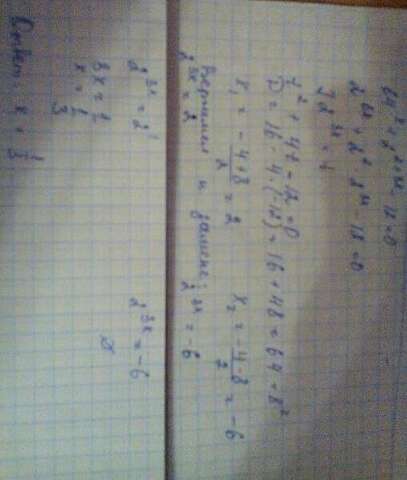 64^x + 2^(2+3x) - 12 = 0
2^(6x) + 2^2 · 2^(3x) - 12 = 0
2^(3x) = t
t² + 4t - 12 = 0
D = 16 - 4·(-12) = 16 + 48 = 64 = 8²
x₁ = (-4+8)/2 = 2    x₂ = (-4-8)/2 = -6
Вернемся к замене:
2^(3x) = 2    2^(3x) = -6
2^(3x) = 2^1    2^(3x) = -6
3x = 1    ∅
x = 1/3
Ответ: x = 1/3